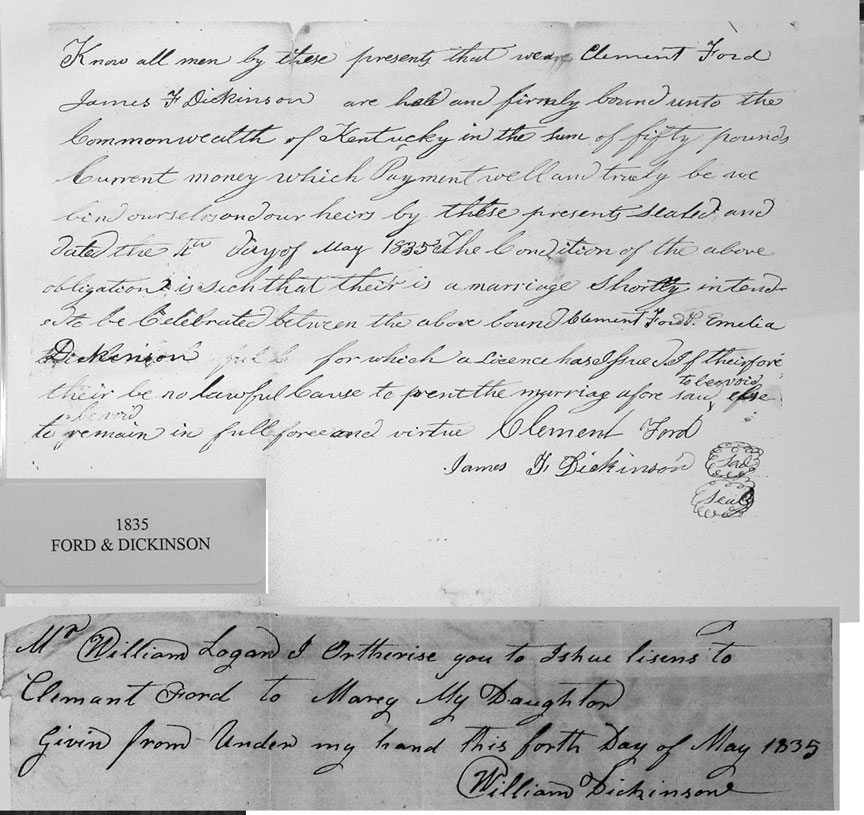 Know all men by these presents that we are Clement Ford
James F Dickinson are held and firmly bound unto the
Commonwealth of Kentucky in the sum of fifty pounds
Current money which Payment well and truely be we
bind ourselvs and our heirs by these presents Sealed and
dated the 4th day of May 1835 The Condition of the above
obligation is such that their is a marriage Shortly intend
ed to be Celebrated between the above bound Clement Ford & Emelia
Dickenson for which a Licence has Issued If therfore
their be no lawful Cause to prent the marriag afore said to be void else
to remain in full force and virtue Clement Ford Seal
James F Dickinson Seal
1835
FORD & DICKINSON
Mr William Logan I Ortherise you to Ishue lisens to
Clemant Ford to Marey My Daughton
Givin from Under my hand this forth Day of May 1835
William Dickinson